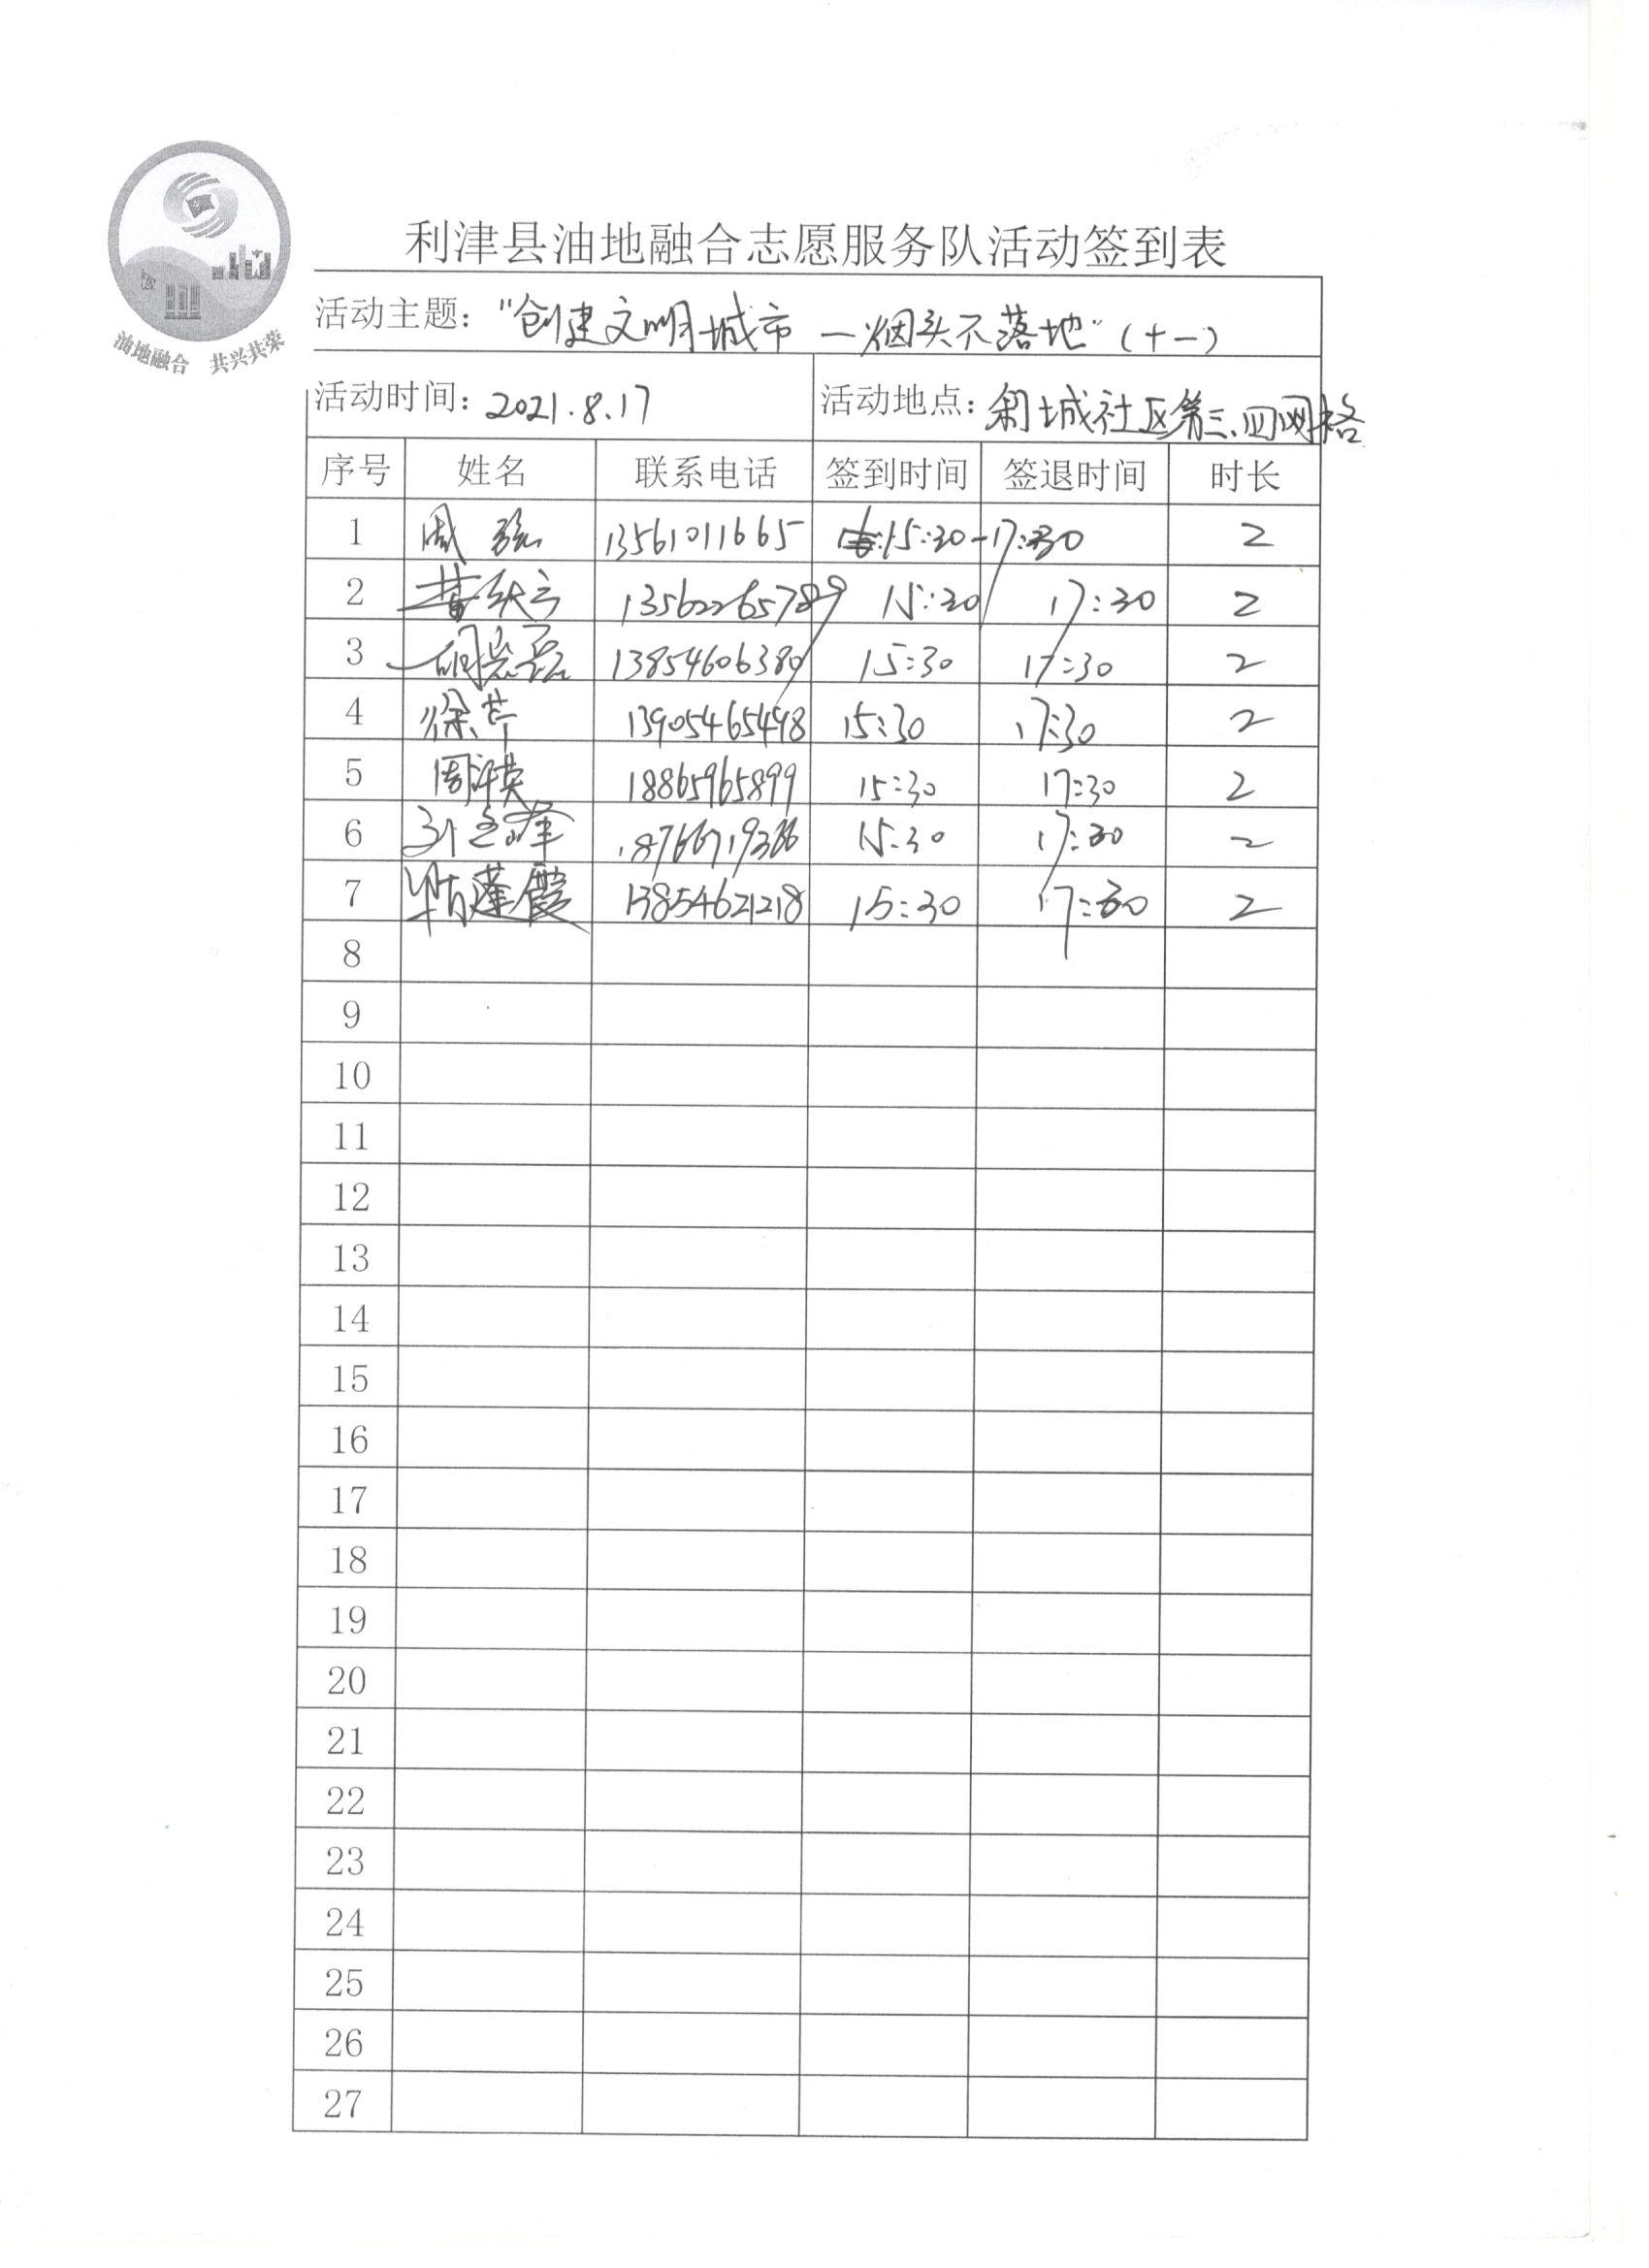 利津县油地融合志愿服务队活动签到表
油地融合 共兴共荣
活动主题："创建文明城市 一烟头不落地"（十一）
活动时间：2021.8.17 活动地点：利城社区第三、四网格
序号 姓名 联系电话 签到时间 签退时间 时长
1 周 13561011665 15:30-17:30 2
2 13562265789 15:30 17:30 2
3 13854606380 15:30 17:30 2
4 徐芹 13905465498 15:30 17:30 2
5 周 英 18865965899 15:30 17:30 2
6 峰 15:30 17:30 2
7 蓬霞 13854621218 15:30 17:30 2
8
9
10
11
12
13
14
15
16
17
18
19
20
21
22
23
24
25
26
27